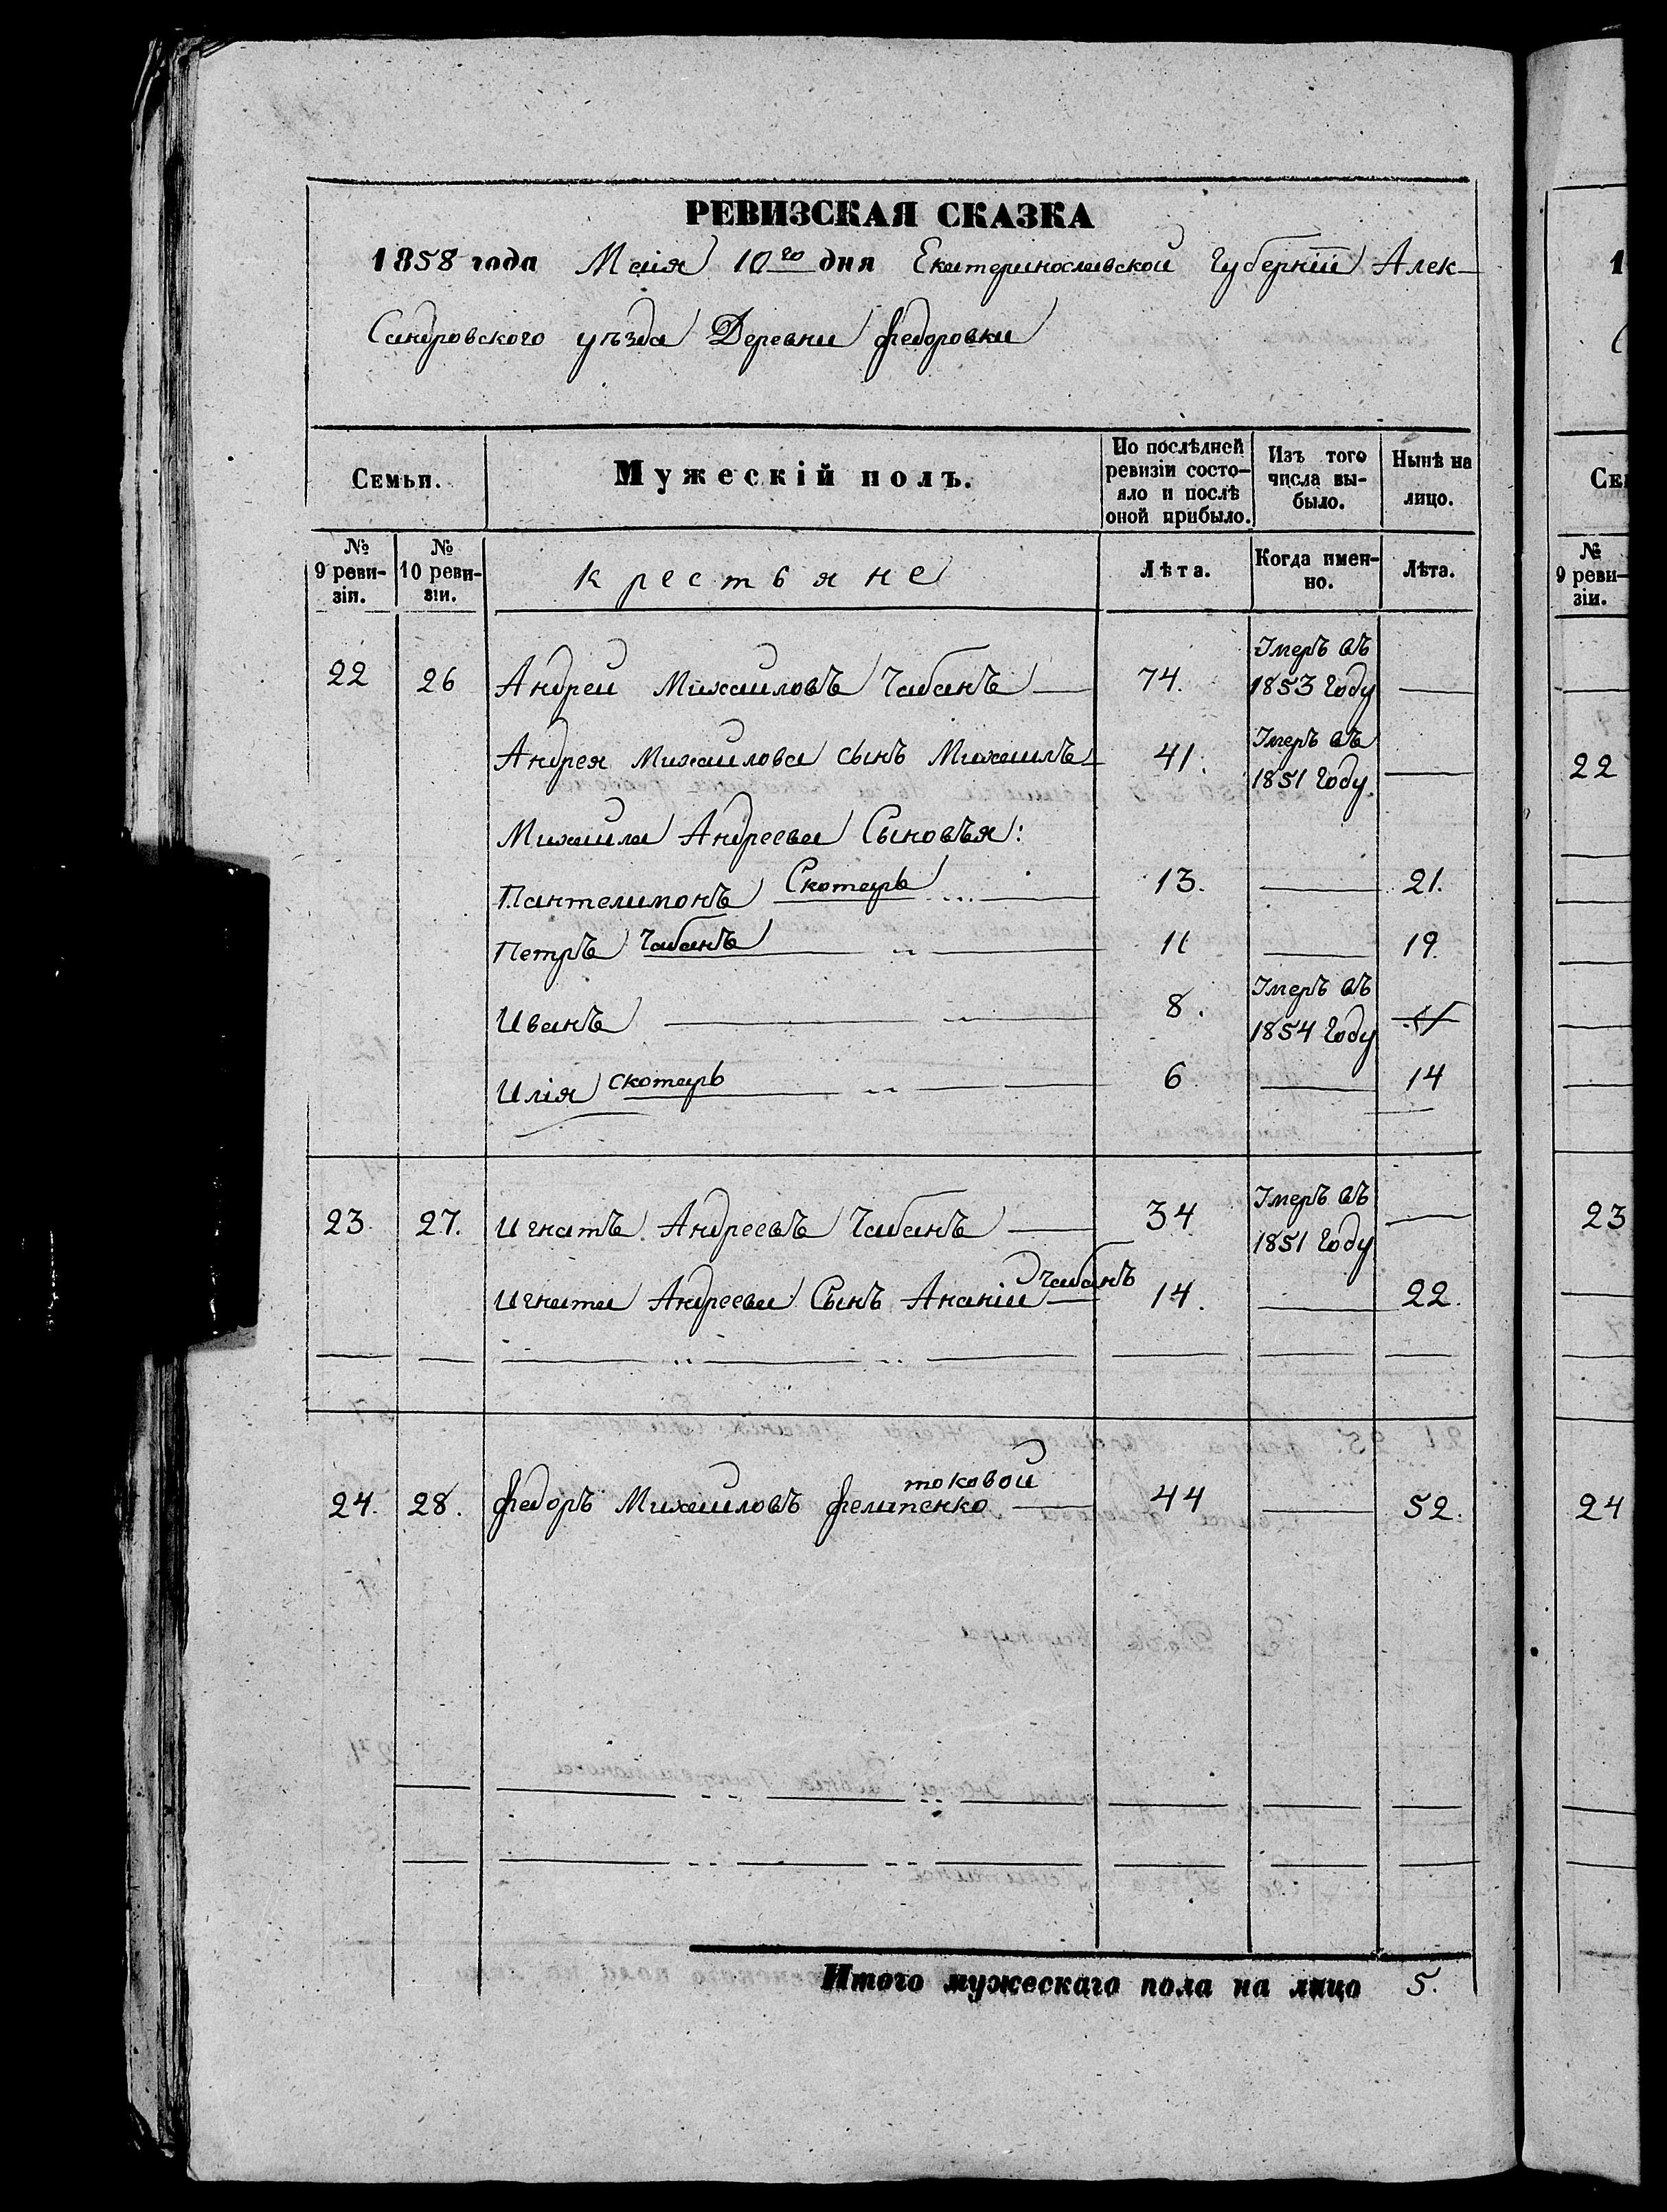 РЕВИЗСКАЯ СКАЗКА
1858 года Маія 10го дня Екатеринославской Губерніи Алек-
сандровского уѣзда Деревни Федоровки
Семьи. Мужескій полъ. По послѣдней ревизіи состо-яло и послѣ оной прибыло. Изъ того числа вы-было. Нынѣ на лицо.
№ 9 реви-зіи. № 10 реви-зіи. Крестьяне Лѣта. Когда имен-но. Лѣта.
22 26 Андрей Михайловъ Чабанъ — 74. Умеръ въ 1853 Году —
Андрея Михайлова сынъ Михаилъ 41. Умеръ въ 1851 Году. —
Михаила Андреева Сыновья:
Пантелимонъ Скотарь 13. — 21.
Петръ Чабанъ 11 — 19.
Иванъ 8. Умеръ въ 1854 Году —
Илія скотарь 6 — 14
23. 27. Игнатъ Андреевъ Чабанъ — 34 Умеръ въ 1851 Году —
Игната Андреева Сынъ Ананій Чабанъ 14. — 22.
24. 28. Федоръ Михайловъ Фелипенко токовой 44 — 52.
Итого мужескаго пола на лицо 5.
1
Се
№ 9 реви-зіи.
22
23
24